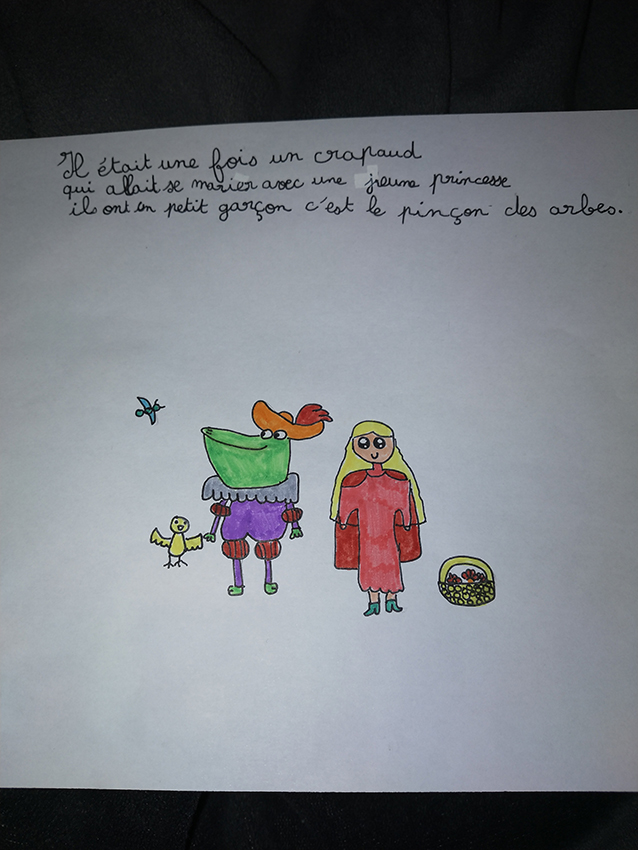 Il était une fois un crapaud
qui allait se marier avec une jeune princesse
ils ont un petit garçon c'est le pinçon des arbes.